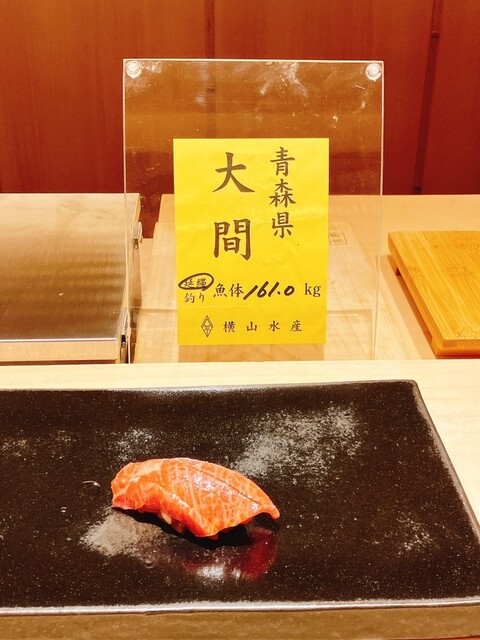 青森県
大間
延縄
釣り
魚体161.0 kg
横山水産